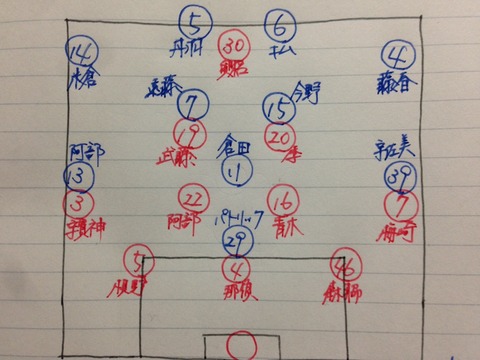 5 6
丹羽 30 キム
14 興梠 4
米倉 遠藤 今野 藤春
7 15
19 20
武藤 倉田 李
阿部 宇佐美
13 11 39
3 22 16 7
宇賀神 阿部 パトリック 青木 梅崎
29
5 4 46
槙野 那須 森脇